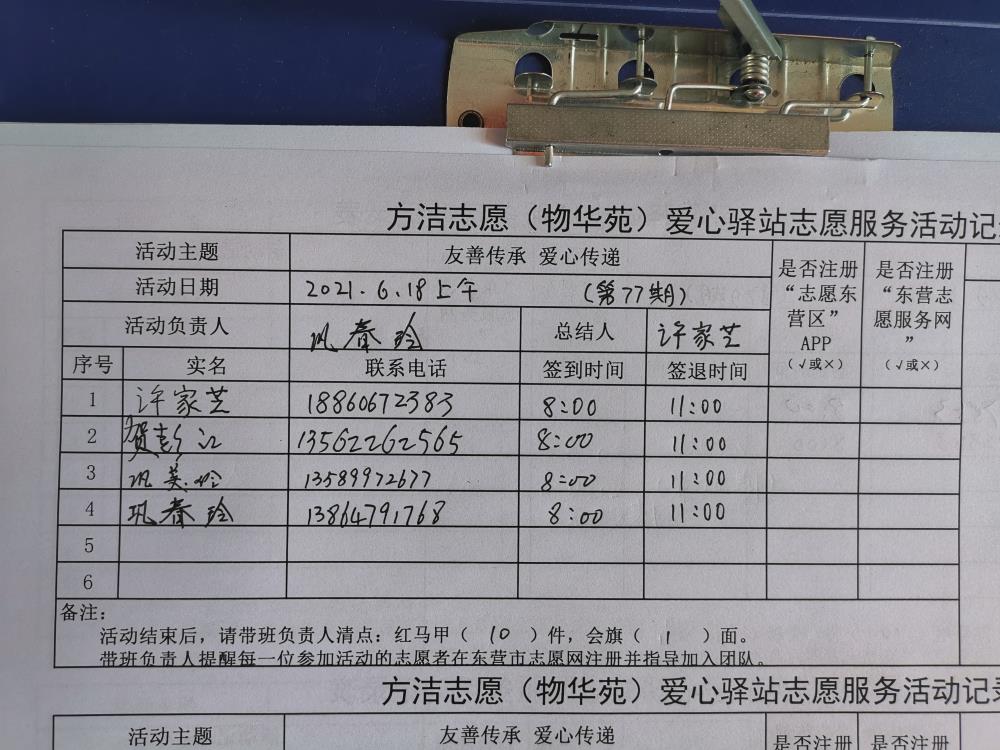 方洁志愿（物华苑）爱心驿站志愿服务活动记
活动主题 友善传承 爱心传递
活动日期 2021.6.18上午 （第77期）
是否注册“志愿东营区”APP（√或×）
是否注册“东营志愿服务网”（√或×）
活动负责人 巩春玲 总结人 许家芝
序号 实名 联系电话 签到时间 签退时间
1 许家芝 18860672383 8:00 11:00
2 贺彭江 13562262565 8:00 11:00
3 巩英玲 13589972677 8:00 11:00
4 巩春玲 13864791768 8:00 11:00
5
6
备注：
活动结束后，请带班负责人清点：红马甲（ 10 ）件，会旗（ 1 ）面。
带班负责人提醒每一位参加活动的志愿者在东营市志愿网注册并指导加入团队。
方洁志愿（物华苑）爱心驿站志愿服务活动记录
活动主题 友善传承 爱心传递 是否注册 是否注册